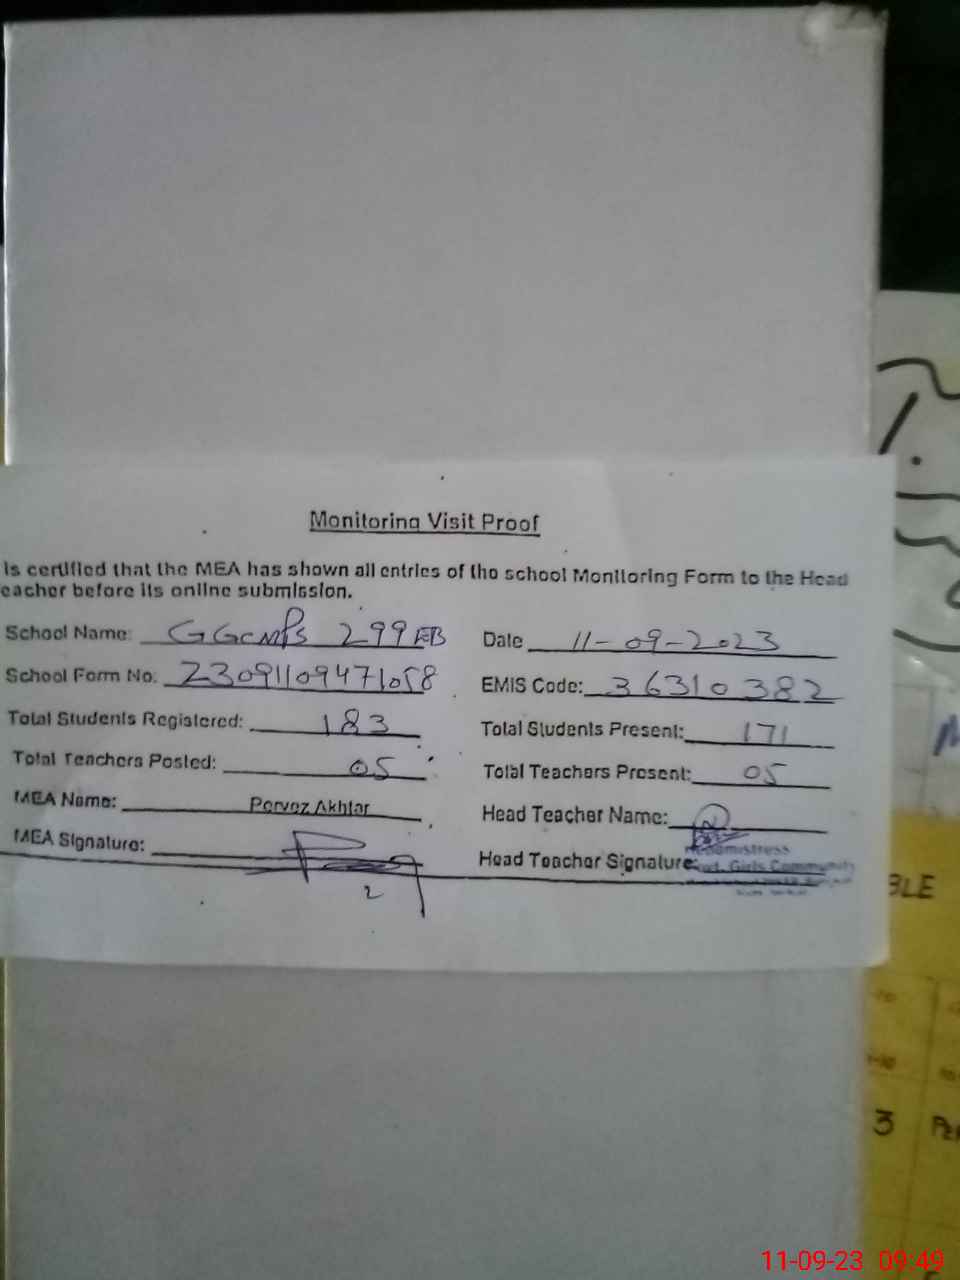 Monitoring Visit Proof
is certified that the MEA has shown all entries of the school Monitoring Form to the Head
eacher before its online submission.
School Name: GGCMPS 299 EB Date 11-09-2023
School Form No: 23091109471058 EMIS Code: 36310382
Total Students Registered: 183 Total Students Present: 171
Total Teachers Posted: 05 Total Teachers Present: 05
MEA Name: Pervez Akhtar Head Teacher Name:
MEA Signature: Head Teacher Signature:
Headmistress
Govt. Girls Community
2
BLE
3 PE
11-09-23 09:49